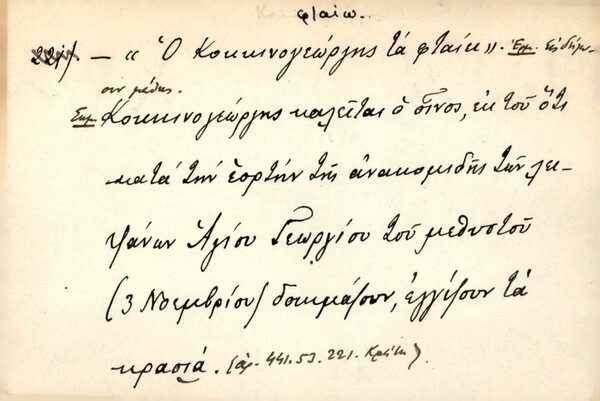 φταίω.
221) — « Ὁ Κοκκινογεώργης τὰ φταίει ». Ἑρμ. Εἰς δήμω-
σιν μέθης.
Σημ. Κοκκινογεώργης καλεῖται ὁ οἶνος, ἐκ τοῦ ὅτι
κατὰ τὴν ἑορτὴν τῆς ἀνακομιδῆς τῶν λει-
ψάνων Ἁγίου Γεωργίου τοῦ μεθυστοῦ
(3 Νοεμβρίου) δοκιμάζουν, ἐγγίζουν τὰ
κρασιά. (ἀρ. 441. 53. 221. Κρήτη).